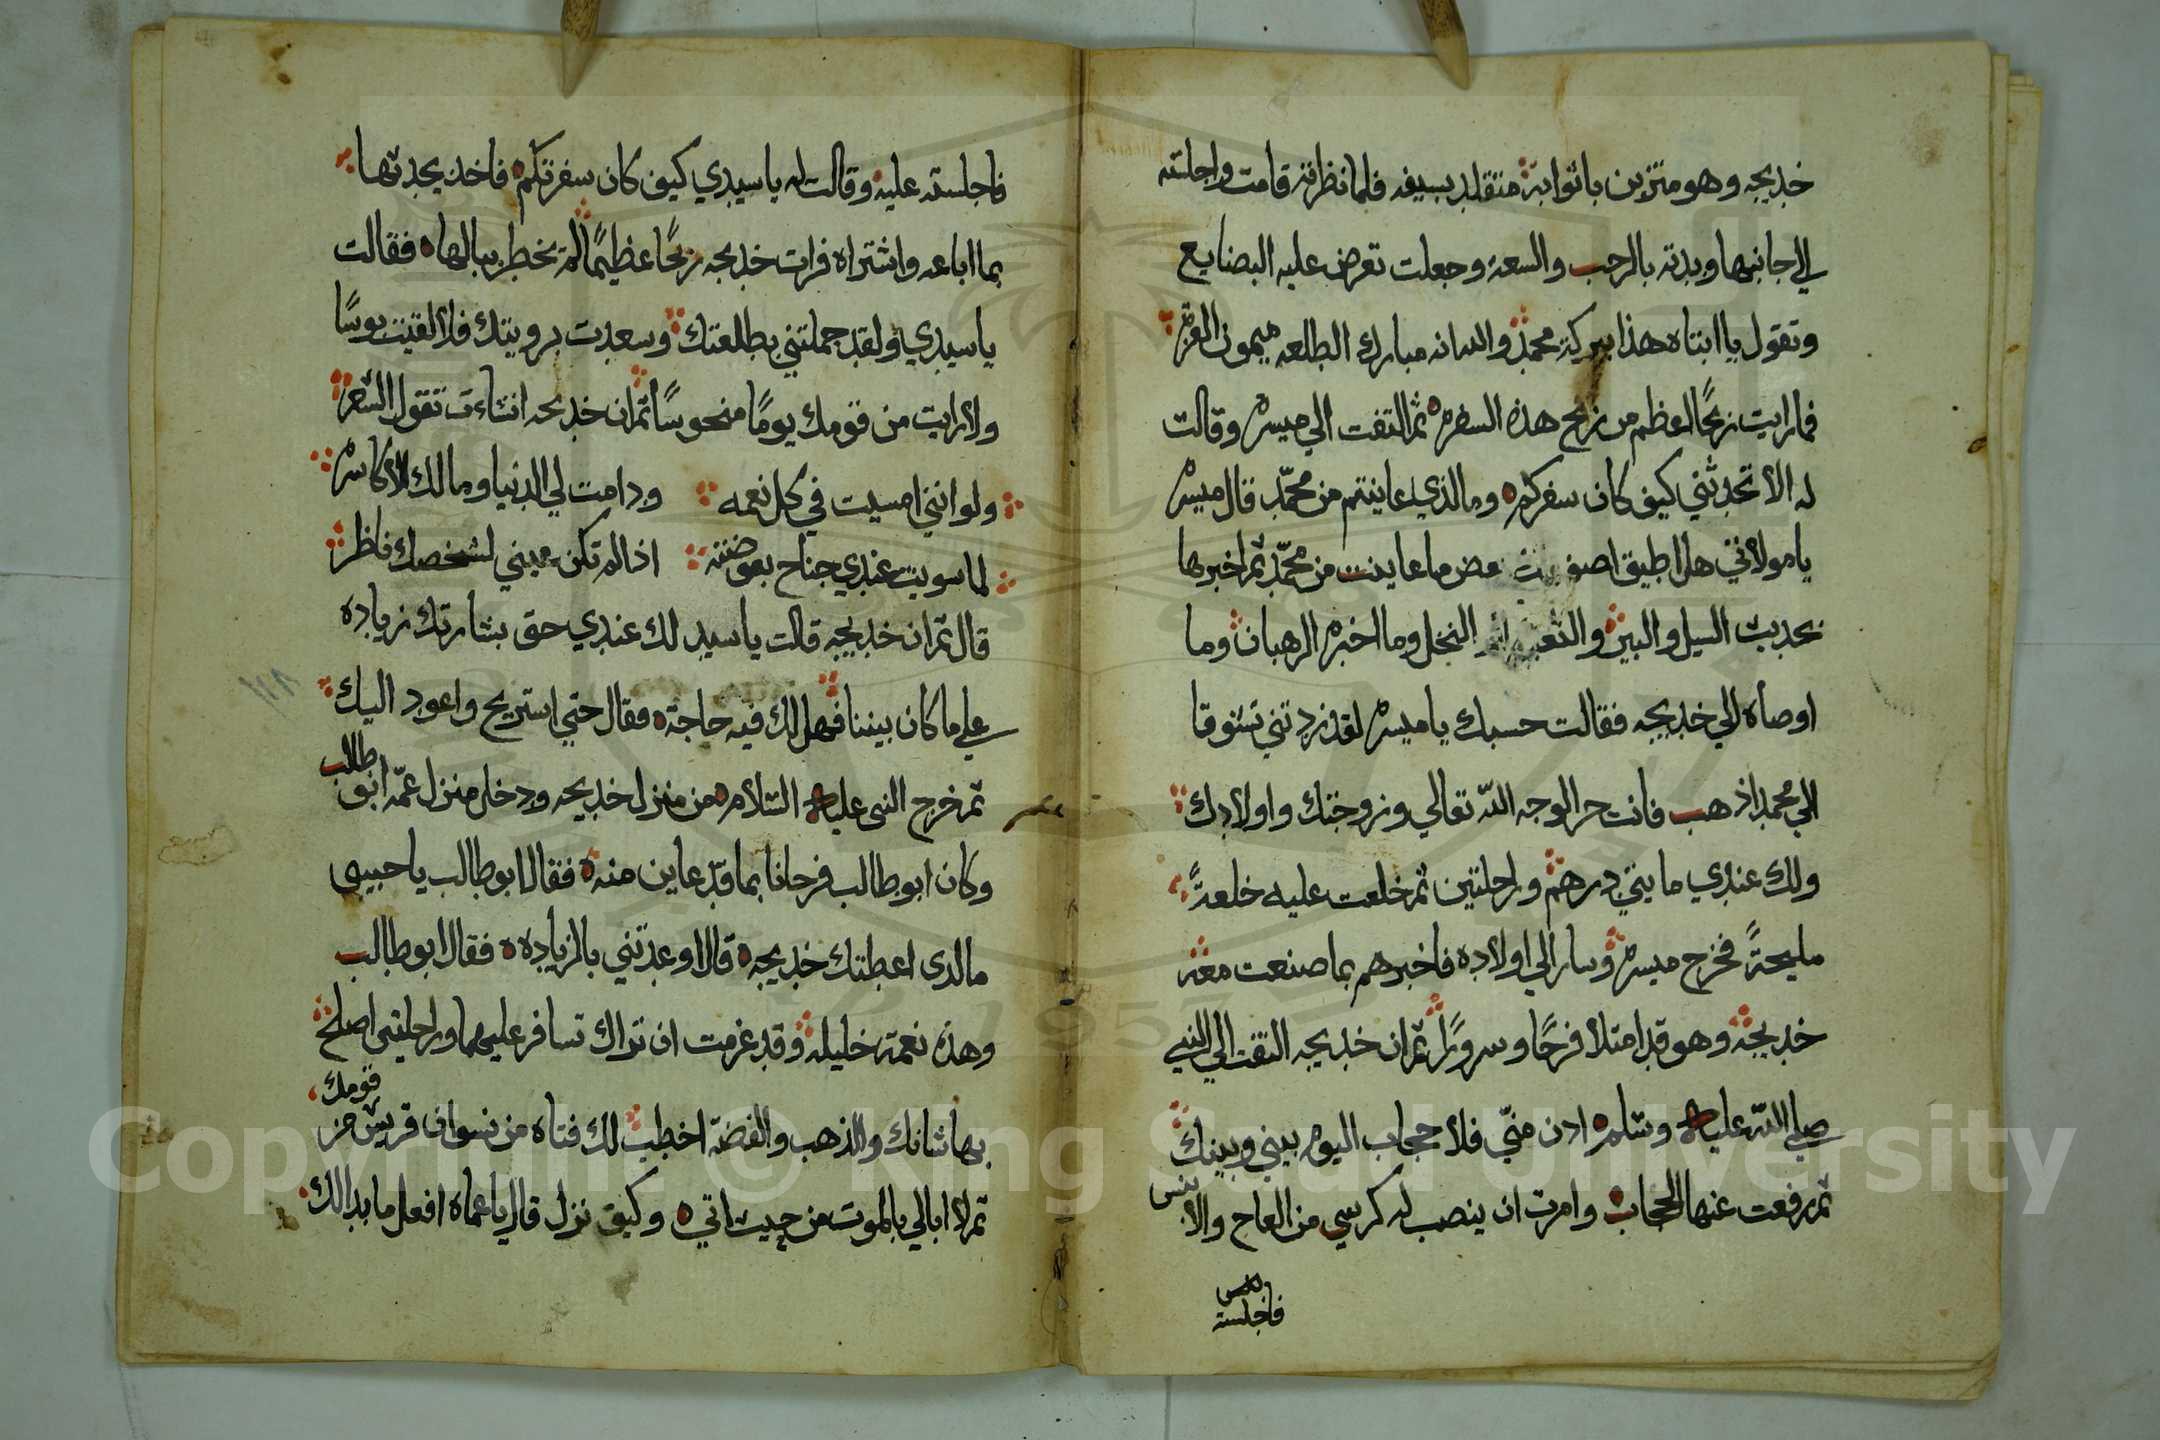 خديجه وهو متزين باثوابه متقلد بسيفه فلما نظرته قامت واجلسته
الي جانبها وبدته بالرحب والسعة وجعلت تعرض عليه البضايع
وتقول يا ابتاه هذا ببركة محمد والله انه مبارك الطلعه ميمون الغرة
فما رايت ربحًا اعظم من ربح هذه السفره ثم التفت الي ميسره وقالت
له الا تحدثني كيف كان سفركم وما الذي عاينتم من محمّد قال ميسره
يا مولاتي هل اطيق اصف بعض ما عاينت من محمّد ثم اخبرها
بحديث السيل والبير والثعبان النخل وما اخبره الرهبان وما
اوصاه الي خديجه فقالت حسبك يا ميسره لقد زدتني شوقا
الي محمد اذهب فانت حر لوجه الله تعالي وزوجتك واولادك
ولك عندي مايتي درهم وراحلتين ثم خلعت عليه خلعةً
مليحةً فخرج ميسره وسار الي اولاده فاخبرهم بما صنعت معه
خديجة وهو قد امتلا فرحًا وسرورًا ثم ان خديجه التفت الي النبي
صلي الله عليه وسلم ادن منّي فلا حجاب اليوم بيني وبينك
ثم رفعت عنها الحجاب وامرت ان ينصب له كرسي من العاج والابنس
فاجلسته
فاجلسته عليه وقالت له يا سيدي كيف كان سفرتكم فاخذ يحدثها
بما اباعه واشتراه فرات خديجه ربحًا عظيمًا لم يخطر ببالها فقالت
يا سيدي ولقد جملتني بطلعتك وسعدت برويتك فلا لقيت بوسًا
ولا رايت من قومك يومًا منحوسًا ثم ان خديجه انشاءت تقول الشعر
ولو انني امسيت في كل نعمه ودامت لي الدنيا ومالك الاكاسره
لما سويت عندي جناح بعوضة اذا لم تكن عيني لشخصك ناظره
قال ثم ان خديجه قالت يا سيد لك عندي حق بشارتك زياده
علي ما كان بيننا فهل لك فيه حاجة فقال حتي استريح واعود اليك
ثم خرج النبي عليه السلام من منزل خديجه ودخل منزل عمّه ابو طالب
وكان ابو طالب فرحانا بما قد عاين منه فقال ابو طالب يا حبيبي
ما الذي اعطتك خديجه قال اوعدتني بالزياده فقال ابو طالب
وهذه نعمة خليله وقد عزمت ان تراك تسافر عليهما وراحلتي اصلح
بها شانك والذهب والفضة اخطب لك فتاه من نسوان قريش من قومك
ثم لا ابالي بالموت من حيث اتي وكيف نزل قال يا عماه افعل ما بدالك